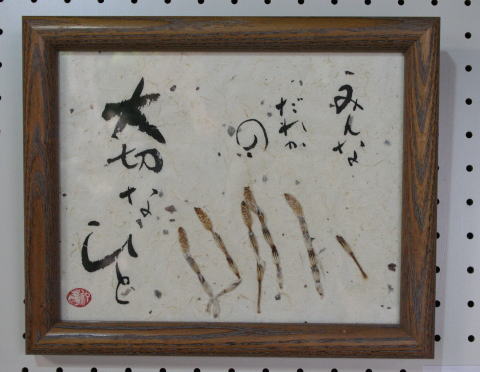 みんな
だれか
の
大切な
ひと